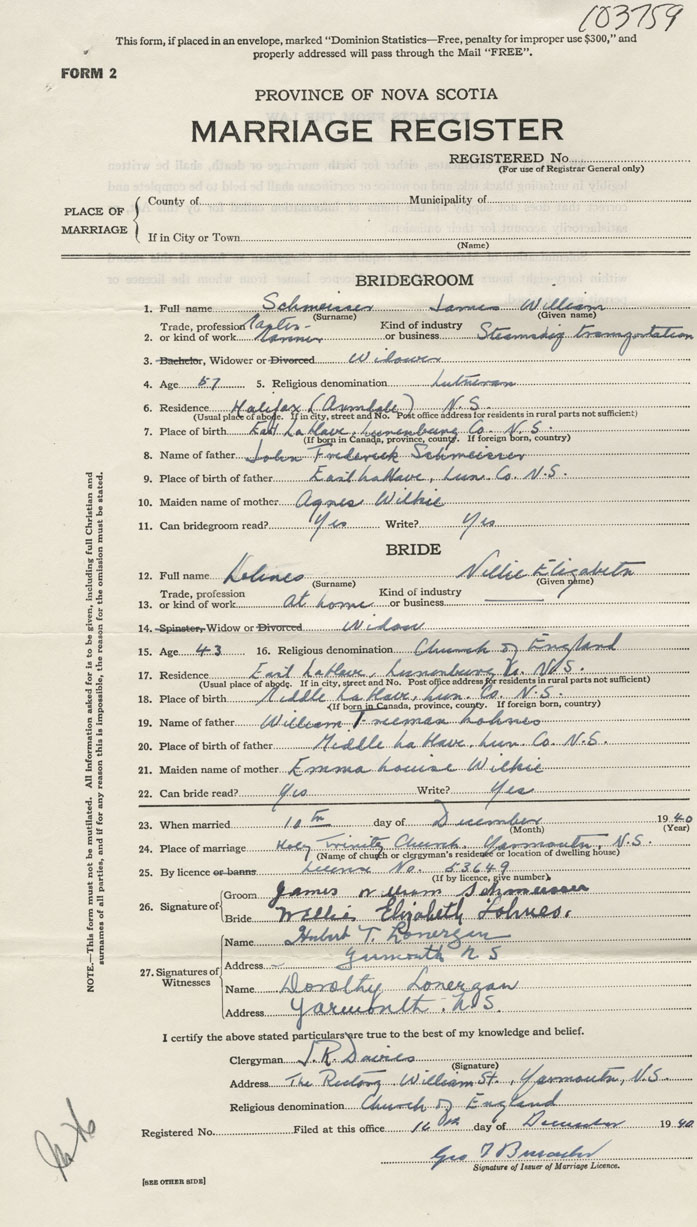 103759
This form, if placed in an envelope, marked "Dominion Statistics—Free, penalty for improper use $300," and
properly addressed will pass through the Mail "FREE".
FORM 2
PROVINCE OF NOVA SCOTIA
MARRIAGE REGISTER
REGISTERED No.
(For use of Registrar General only)
PLACE OF MARRIAGE
County of Municipality of
If in City or Town
(Name)
BRIDEGROOM
1. Full name Schmeisser James William
(Surname) (Given name)
2. Trade, profession or kind of work Master Mariner Kind of industry or business Steamship transportation
3. Bachelor, Widower or Divorced Widower
4. Age 57 5. Religious denomination Lutheran
6. Residence Halifax (Armdale) N.S.
(Usual place of abode. If in city, street and No. Post office address for residents in rural parts not sufficient)
7. Place of birth East LaHave, Lunenburg Co. N.S.
(If born in Canada, province, county. If foreign born, country)
8. Name of father John Frederick Schmeisser
9. Place of birth of father East LaHave, Lun. Co. N.S.
10. Maiden name of mother Agnes Wilkie
11. Can bridegroom read? Yes Write? Yes
BRIDE
12. Full name Lohnes Willie Elizabeth
(Surname) (Given name)
13. Trade, profession or kind of work At home Kind of industry or business
14. Spinster, Widow or Divorced Widow
15. Age 43 16. Religious denomination Church of England
17. Residence East LaHave, Lunenburg Co. N.S.
(Usual place of abode. If in city, street and No. Post office address for residents in rural parts not sufficient)
18. Place of birth Middle LaHave, Lun. Co. N.S.
(If born in Canada, province, county. If foreign born, country)
19. Name of father William Freeman Lohnes
20. Place of birth of father Middle LaHave, Lun. Co. N.S.
21. Maiden name of mother Emma Louise Wilkie
22. Can bride read? Yes Write? Yes
23. When married 10th day of December 1940
(Month) (Year)
24. Place of marriage Holy Trinity Church, Yarmouth, N.S.
(Name of church or clergyman's residence or location of dwelling house)
25. By licence or banns License No. 53649
(If by licence, give number)
26. Signature of
Groom James William Schmeisser
Bride Willie Elizabeth Lohnes.
27. Signatures of Witnesses
Name Hubert T. Lonergan
Address Yarmouth N S
Name Dorothy Lonergan
Address Yarmouth. N.S.
I certify the above stated particulars are true to the best of my knowledge and belief.
Clergyman J.R. Davies
(Signature)
Address The Rectory William St., Yarmouth, N.S.
Religious denomination Church of England
Registered No. Filed at this office 16 day of December 1940
Geo
Signature of Issuer of Marriage Licence.
[SEE OTHER SIDE]
NOTE.—This form must not be mutilated. All information asked for is to be given, including full Christian and
surnames of all parties, and if for any reason this is impossible, the reason for the omission must be stated.